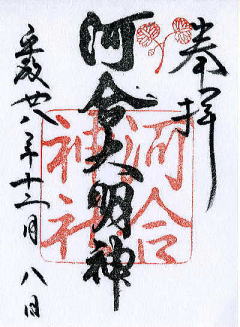 奉拝
河合大明神
河合
神社
平成廿八年十二月八日